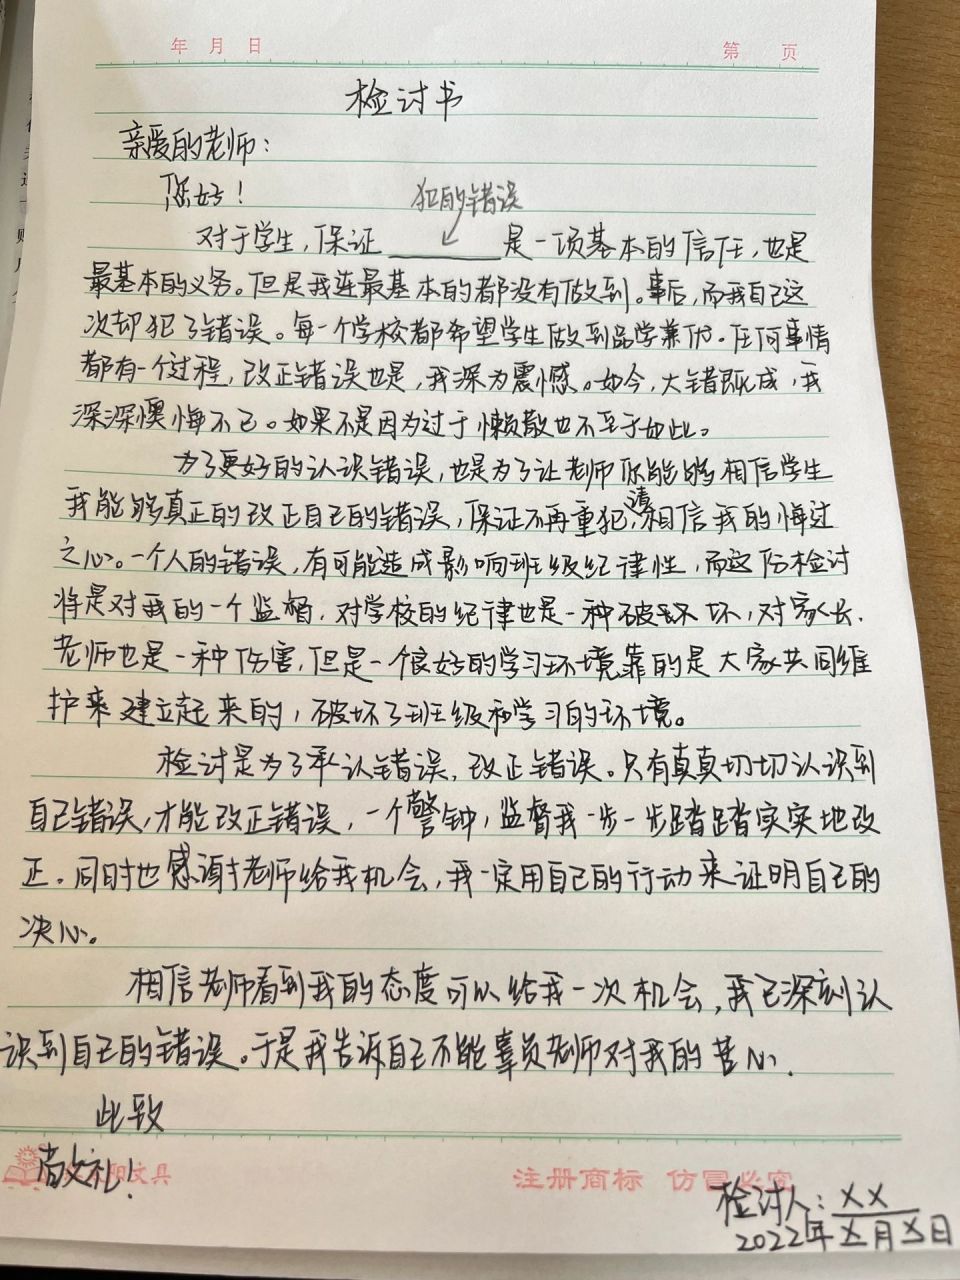 年 月 日
第 页
检讨书
亲爱的老师：
您好！
犯的错误
对于学生，保证________是一项基本的信任，也是
最基本的义务。但是我连最基本的都没有做到。事后，而我自己这
次却犯了错误。每一个学校都希望学生做到品学兼优。任何事情
都有一个过程，改正错误也是，我深为震憾。如今，大错既成，我
深深懊悔不已。如果不是因为过于懒散也不至于如此。
为了更好的认识错误，也是为了让老师你能够相信学生
我能够真正的改正自己的错误，保证不再重犯，请相信我的悔过
之心。一个人的错误，有可能造成影响班级纪律性，而这份检讨
将是对我的一个监督，对学校的纪律也是一种破坏坏，对家长、
老师也是一种伤害，但是一个良好的学习环境靠的是大家共同维
护来建立起来的，破坏了班级和学习的环境。
检讨是为了承认错误，改正错误。只有真真切切认识到
自己错误，才能改正错误，一个警钟，监督我一步一步踏踏实实地改
正。同时也感谢老师给我机会，我一定用自己的行动来证明自己的
决心。
相信老师看到我的态度可以给我一次机会，我已深刻认
识到自己的错误。于是我告诉自己不能辜负老师对我的苦心。
此致
敬礼！
阳文具
注册商标 仿冒必究
检讨人：XX
2022年X月X日